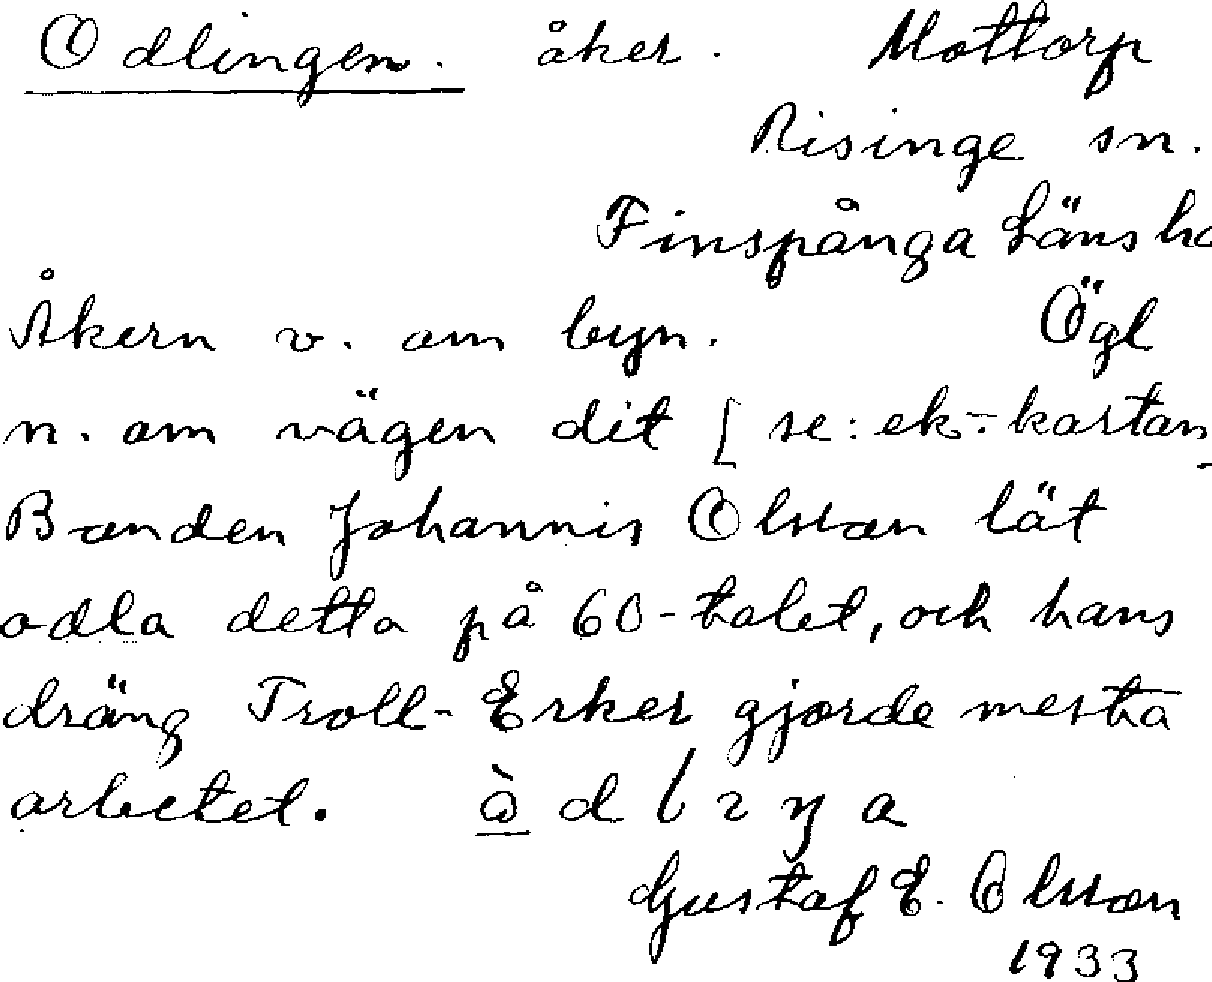 Odlingen. åker. Mottorp
Risinge sn.
Finspånga Läns
Åkern v. om byn. Ögl
n. om vägen dit [se: ek.-kartan]
Bonden Johannis Olsson lät
odla detta på 60-talet, och hans
dräng Troll-Erker gjorde mesta
arbetet.
Gustaf E. Olsson
1933